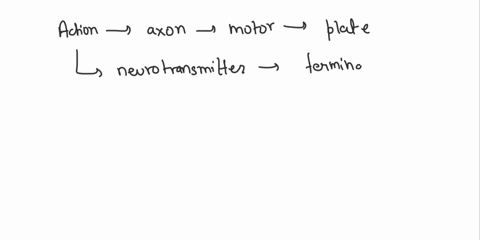 Action → axon → motor → plate
↳ neurotransmitter → termino